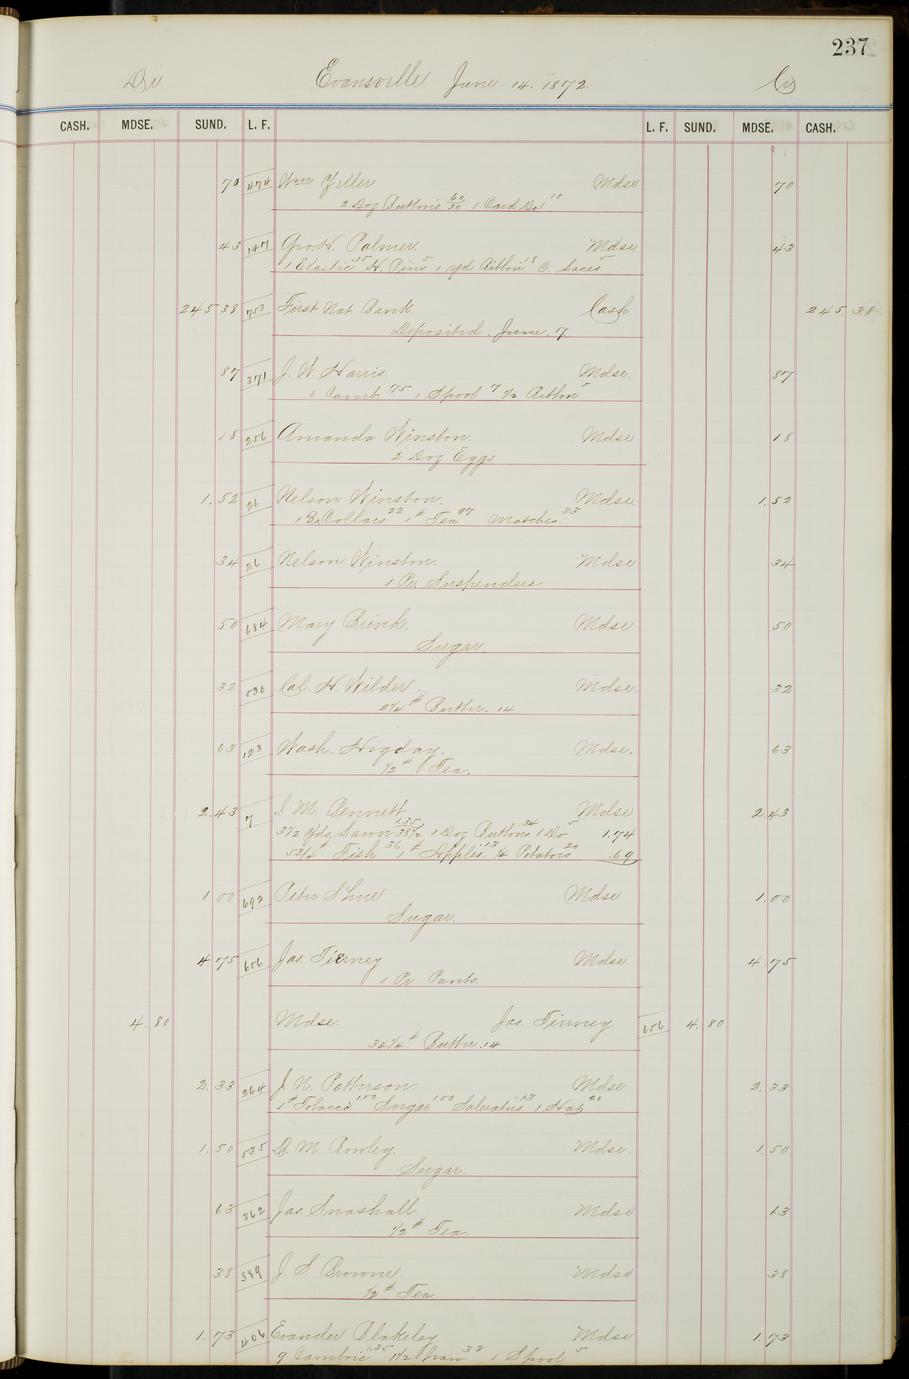 237
Dr. Evansville June 14. 1872 Cr
CASH. MDSE. SUND. L. F. L. F. SUND. MDSE. CASH.
70 474 Wm Yeller Mdse 70
2 Dog Buttons 60/30 1 Card Do 10
43 147 Geo. H. Palmer. Mdse 43
1 Elastic 15 H. Pins 5 1 yd Ribbon 18 C. Laces 5
245 38 753 First Nat Bank. Cash 245 38
Deposited. June. 7
87 371 J. W Harris. Mdse. 87
6 Camb. 75 1 Spool 7 1/2 Ribbon 5
18 256 Amanda Winston. Mdse 18
2 Dog Eggs
1.52 26 Nelson Winston. Mdse. 1.52
1 Bx Collars 22 1# Tea 97 Matches 33
34 26 Nelson Winston. Mdse 34
1 Pr. Suspenders
50 684 Mary Brink. Mdse 50
Sugar.
32 530 Cal. H. Wilder. Mdse. 32
2 1/4# Butter. 14
63 123 Wash. Higday. Mdse. 63
1/2# Tea.
2.43 7 I M. Bennett Mdse 2.43
3 1/2 Yds Lawn 1.35 38 1/2 1 Dog Buttons 34 1 Do 5 1.74
5 3/4# Fish 36 1# Apples. 13 1/4 Potatoes 20 .69
1 00 692 Peter S Lue Mdse 1.00
Sugar.
4 75 656 Jas. Tierney Mdse. 4.75
1 Pr Pants.
4.80 Mdse. Jas. Tinney. 656 4.80
34 1/4# Butter. 14
2.33 264 J. N. Patterson. Mdse 2.33
1# Tobacco 1.00 Sugar 1.00 Saleratus 13 1 Hat 20
1.50 535 D. M. Rowley. Mdse. 1.50
Sugar.
63 362 Jas. Snashall Mdse 63
1/2# Tea.
38 389 J. S. Browne. Mdse 38
1/2# Tea
1.73 406 Evander Blakeley Mdse 1.73
9 Cambric 1.35 1 1/2 33 1 Spool 5